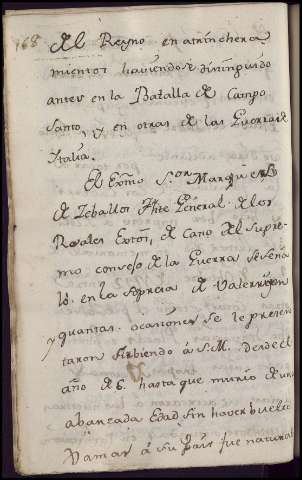 168
del Reyno en atrinchera
mientos haviendose distinguido
antes en la Batalla de Campo
Santo, y en otras de las Guerras de
Ytalia.
El Exmo S.or Marques
de Zeballos Thte General de los
Reales Extos, de cano del Supre
mo consejo de la Guerra se seña
lo en la sopresa de
y quantas ocasiones se le presen
taron sirbiendo á S. M. desde el
año de 6. hasta que murio de una
abanzada Edad sin haver buelto
Jamas á su Pais fue natural